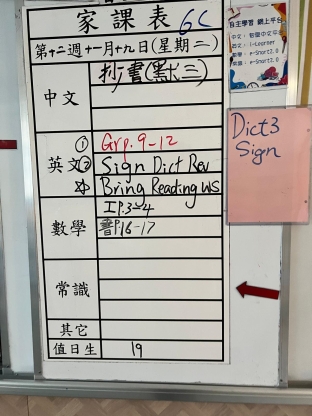 家課表 6C
第十二週十一月十九日(星期二)
中文
抄書(默三)
英文
① Grp. 9-12
② Sign Dict Rev
Bring Reading WS
數學
工P.3-4
書P16-17
常識
其它
值日生 19
自主學習 網上平台
Dict3
Sign